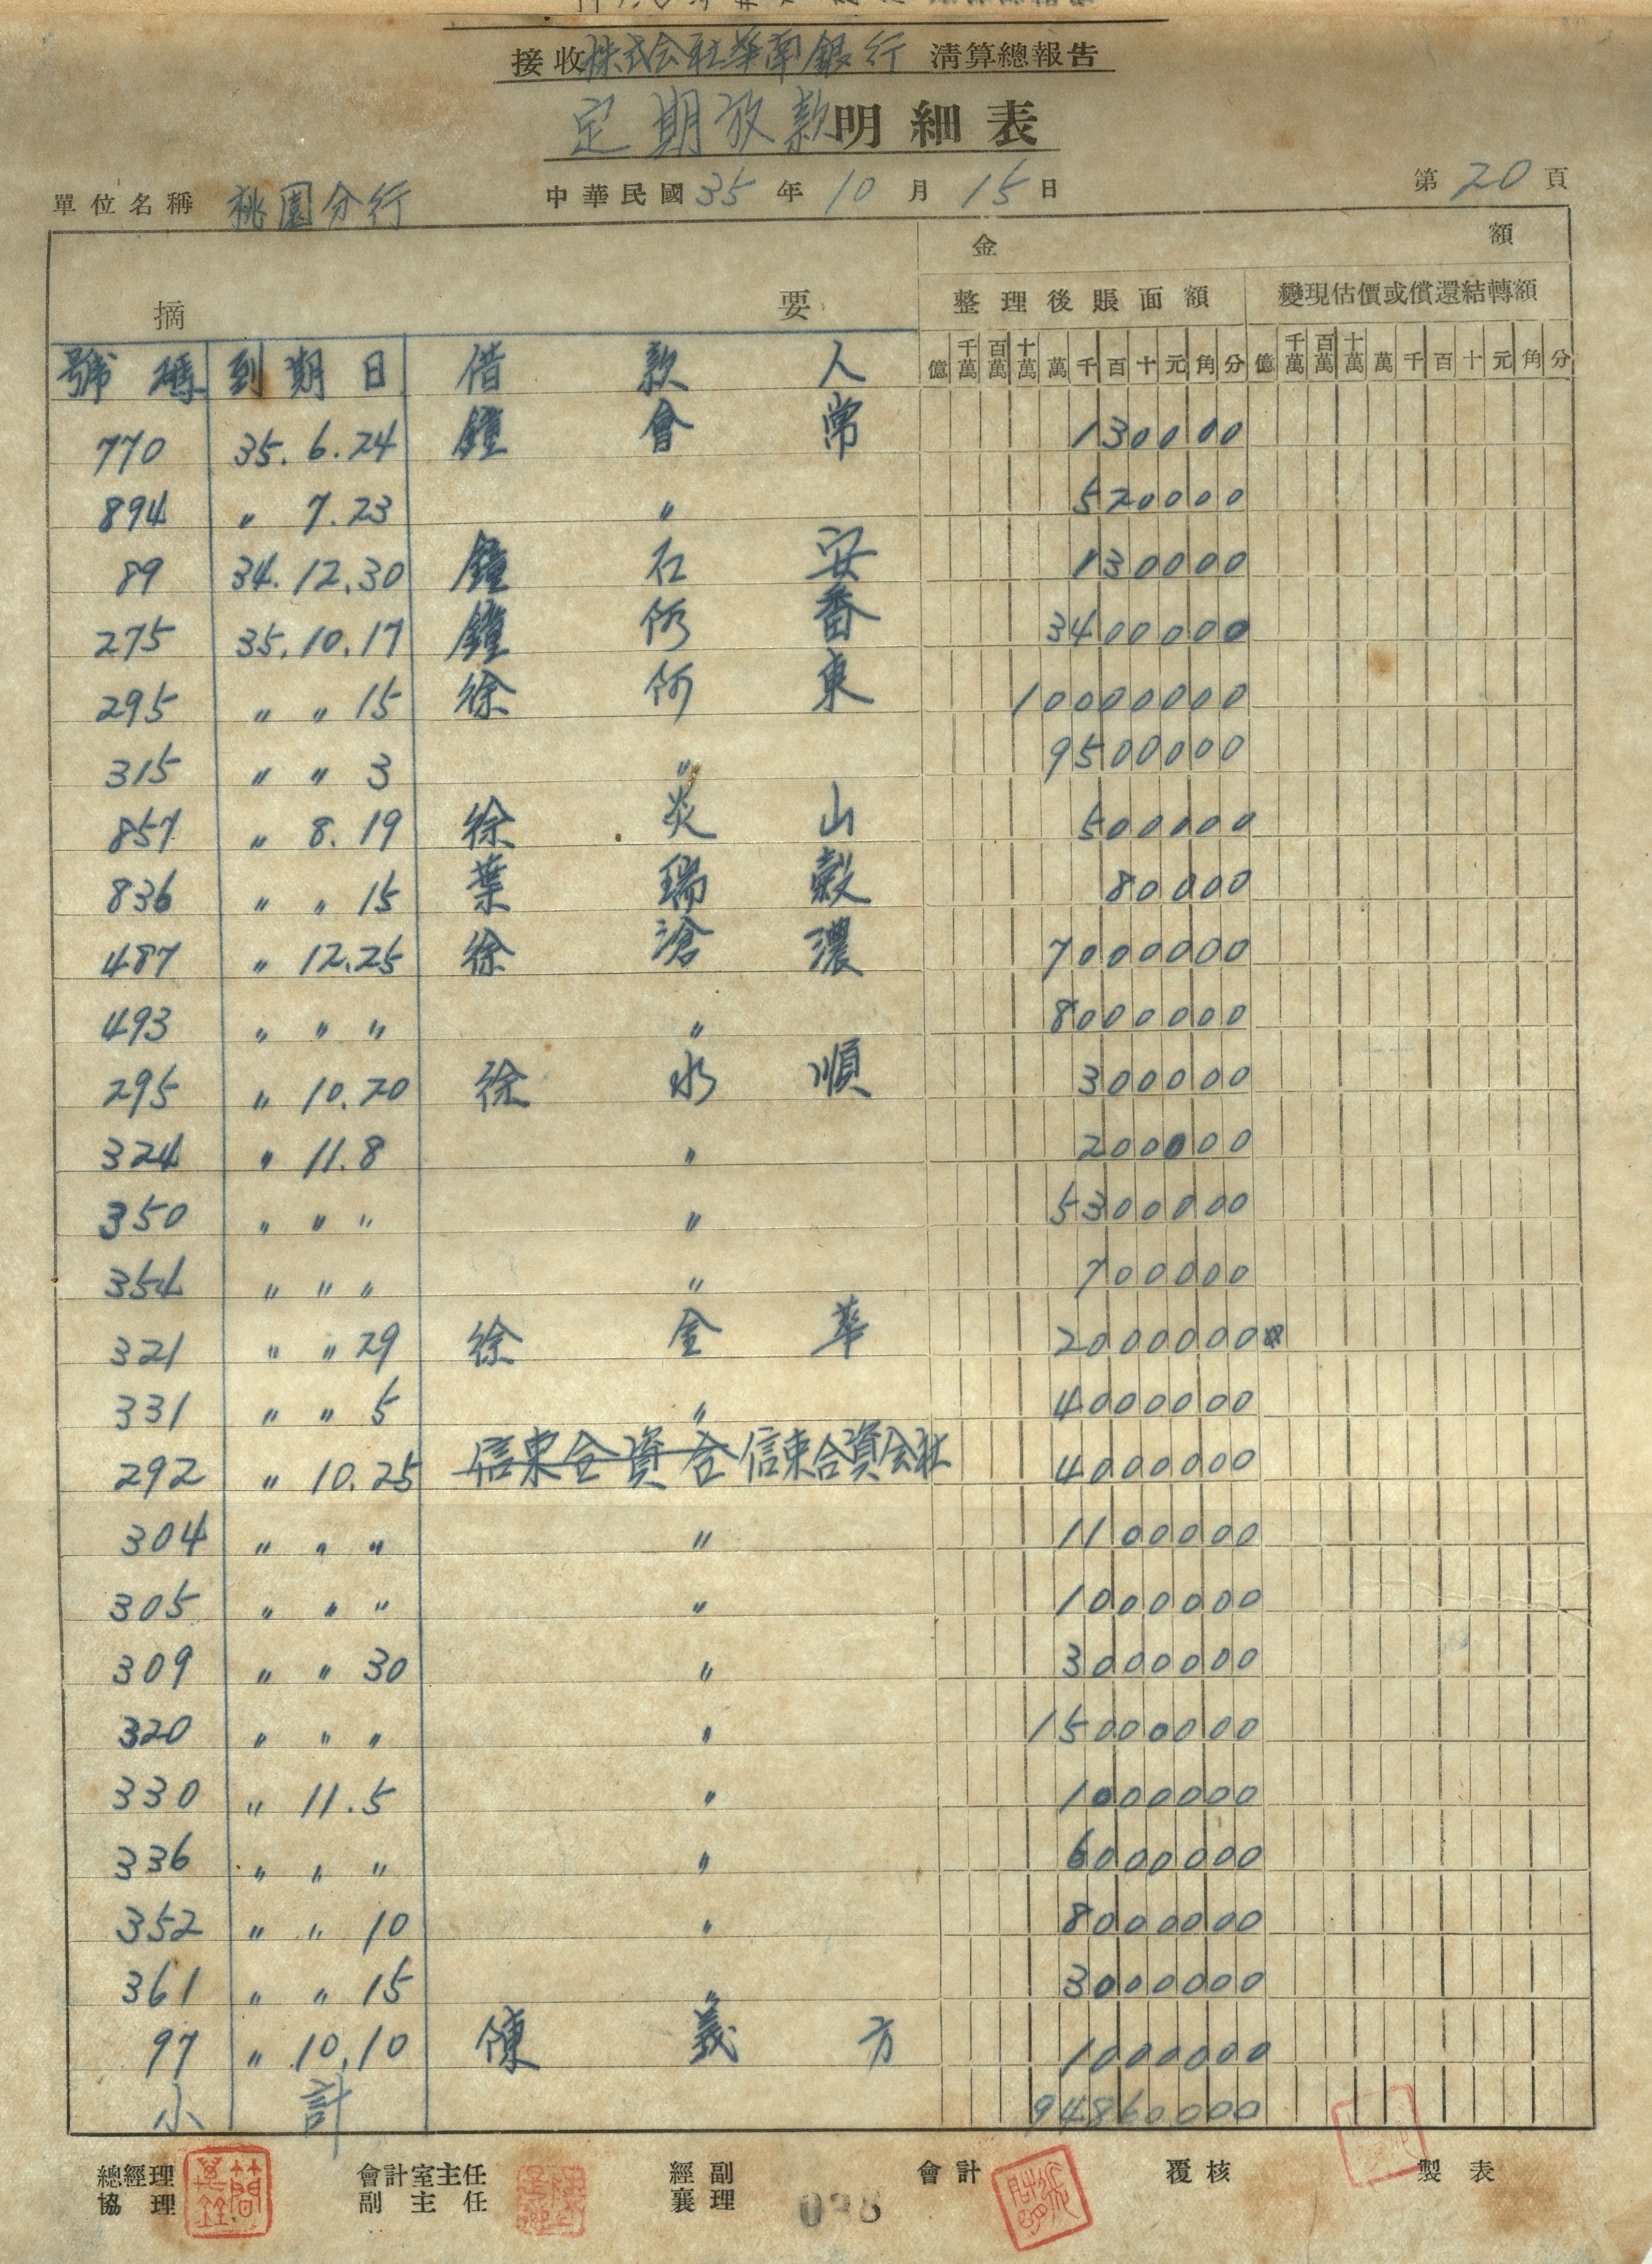 接收株式会社華南銀行 清算總報告
定期放款明細表
單位名稱 桃園分行 中華民國35年10月15日 第20頁
摘要 金額
整理後賬面額 變現估價或償還結轉額
號碼 到期日 借款人 億 千萬 百萬 十萬 萬 千 百 十 元 角 分 億 千萬 百萬 十萬 萬 千 百 十 元 角 分
770 35.6.24 鐘會常 130000
894 〃 7.23 〃 520000
89 34.12.30 鐘石安 130000
275 35.10.17 鐘阿番 3400000
295 〃 〃 15 徐阿東 10000000
315 〃 〃 3 〃 9500000
857 〃 8.19 徐炎山 500000
836 〃 〃 15 葉瑞穀 80000
487 〃 12.25 徐滄濃 7000000
493 〃 〃 〃 〃 8000000
295 〃 10.20 徐水順 300000
324 〃 11.8 〃 200000
350 〃 〃 〃 〃 5300000
354 〃 〃 〃 〃 700000
321 〃 〃 29 徐金華 2000000
331 〃 〃 5 〃 4000000
292 〃 10.25 信東合資合 信東合資会社 4000000
304 〃 〃 〃 〃 1100000
305 〃 〃 〃 〃 1000000
309 〃 〃 30 〃 3000000
320 〃 〃 〃 〃 15000000
330 〃 11.5 〃 1000000
336 〃 〃 〃 〃 6000000
352 〃 〃 10 〃 8000000
361 〃 〃 15 〃 3000000
97 〃 10.10 陳義方 1000000
小計 94860000
總經理 會計室主任 經副 會計 覆核 製表
協理 副主任 襄理
038